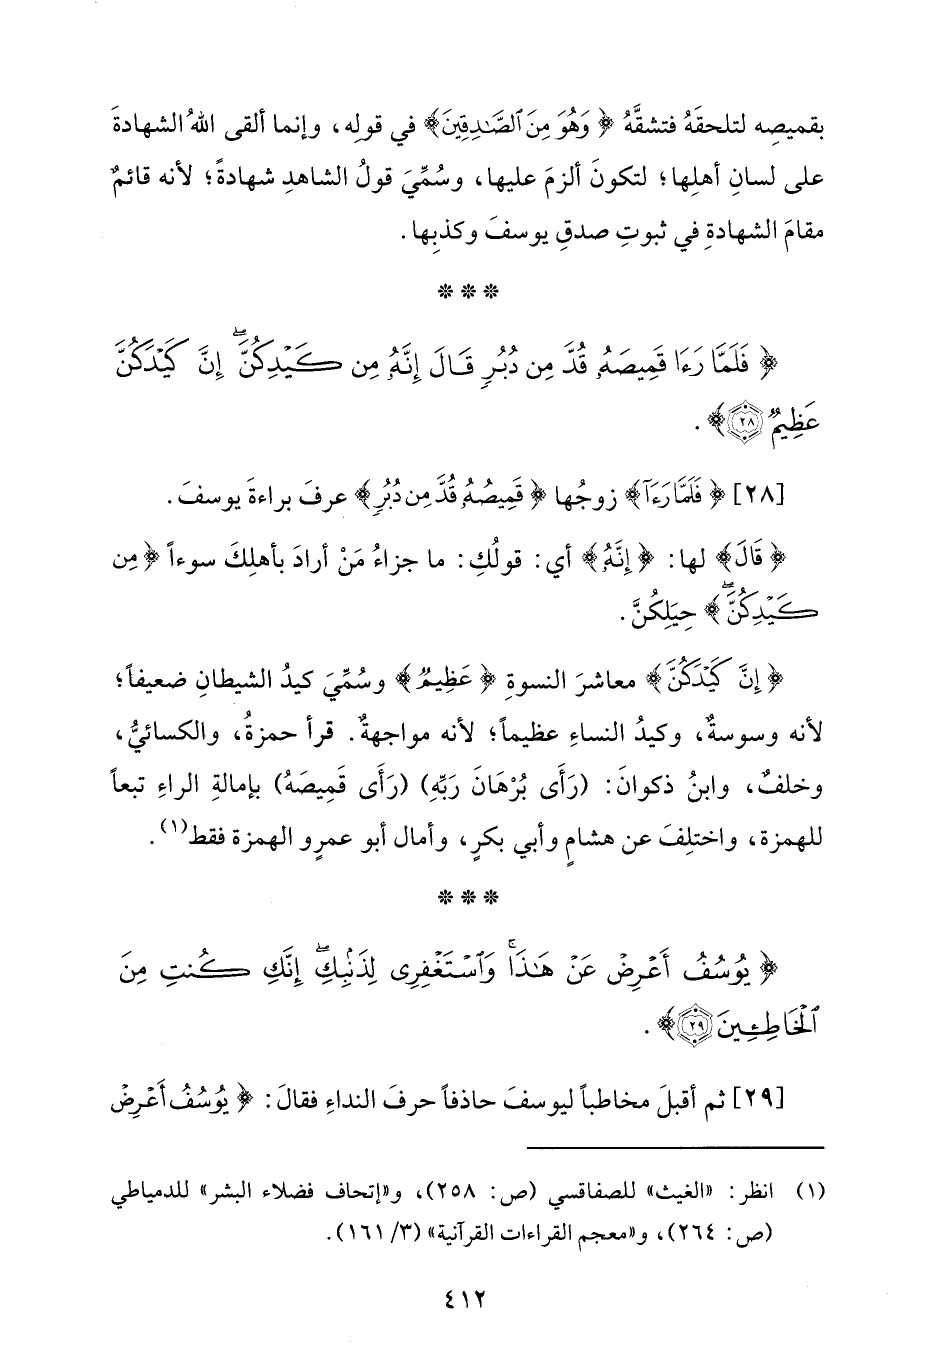 بقميصِه لتلحقَهُ فتشقَّهُ ﴿وَهُوَ مِنَ ٱلصَّٰدِقِينَ﴾ في قولِه، وإنما ألقى اللهُ الشهادةَ
على لسانِ أهلِها؛ لتكونَ ألزمَ عليها، وسُمِّيَ قولُ الشاهدِ شهادةً؛ لأنه قائمٌ
مقامَ الشهادةِ في ثبوتِ صدقِ يوسفَ وكذبِها.
* * *
﴿فَلَمَّا رَءَا قَمِيصَهُۥ قُدَّ مِن دُبُرٍ قَالَ إِنَّهُۥ مِن كَيْدِكُنَّۖ إِنَّ كَيْدَكُنَّ
عَظِيمٌ ٢٨﴾.
[٢٨] ﴿فَلَمَّا رَءَآ﴾ زوجُها ﴿قَمِيصُهُۥ قُدَّ مِن دُبُرٍ﴾ عرفَ براءةَ يوسفَ.
﴿قَالَ﴾ لها: ﴿إِنَّهُۥ﴾ أي: قولُكِ: ما جزاءُ مَنْ أرادَ بأهلِكَ سوءاً ﴿مِن
كَيْدِكُنَّۖ﴾ حِيَلِكُنَّ.
﴿إِنَّ كَيْدَكُنَّ﴾ معاشرَ النسوةِ ﴿عَظِيمٌ﴾ وسُمِّيَ كيدُ الشيطانِ ضعيفاً؛
لأنه وسوسةٌ، وكيدُ النساءِ عظيماً؛ لأنه مواجهةٌ. قرأ حمزةُ، والكسائيُّ،
وخلفٌ، وابنُ ذكوانَ: (رَأَى بُرْهَانَ رَبِّهِ) (رَأَى قَمِيصَهُ) بإمالةِ الراءِ تبعاً
للهمزة، واختلِفَ عن هشامٍ وأبي بكرٍ، وأمال أبو عمرٍو الهمزة فقط(١).
* * *
﴿يُوسُفُ أَعْرِضْ عَنْ هَٰذَاۚ وَٱسْتَغْفِرِى لِذَنۢبِكِۖ إِنَّكِ كُنتِ مِنَ
ٱلْخَاطِـِٔينَ ٢٩﴾.
[٢٩] ثم أقبلَ مخاطباً ليوسفَ حاذفاً حرفَ النداءِ فقالَ: ﴿يُوسُفُ أَعْرِضْ
(١) انظر: «الغيث» للصفاقسي (ص: ٢٥٨)، و«إتحاف فضلاء البشر» للدمياطي
(ص: ٢٦٤)، و«معجم القراءات القرآنية» (٣/ ١٦١).
٤١٢